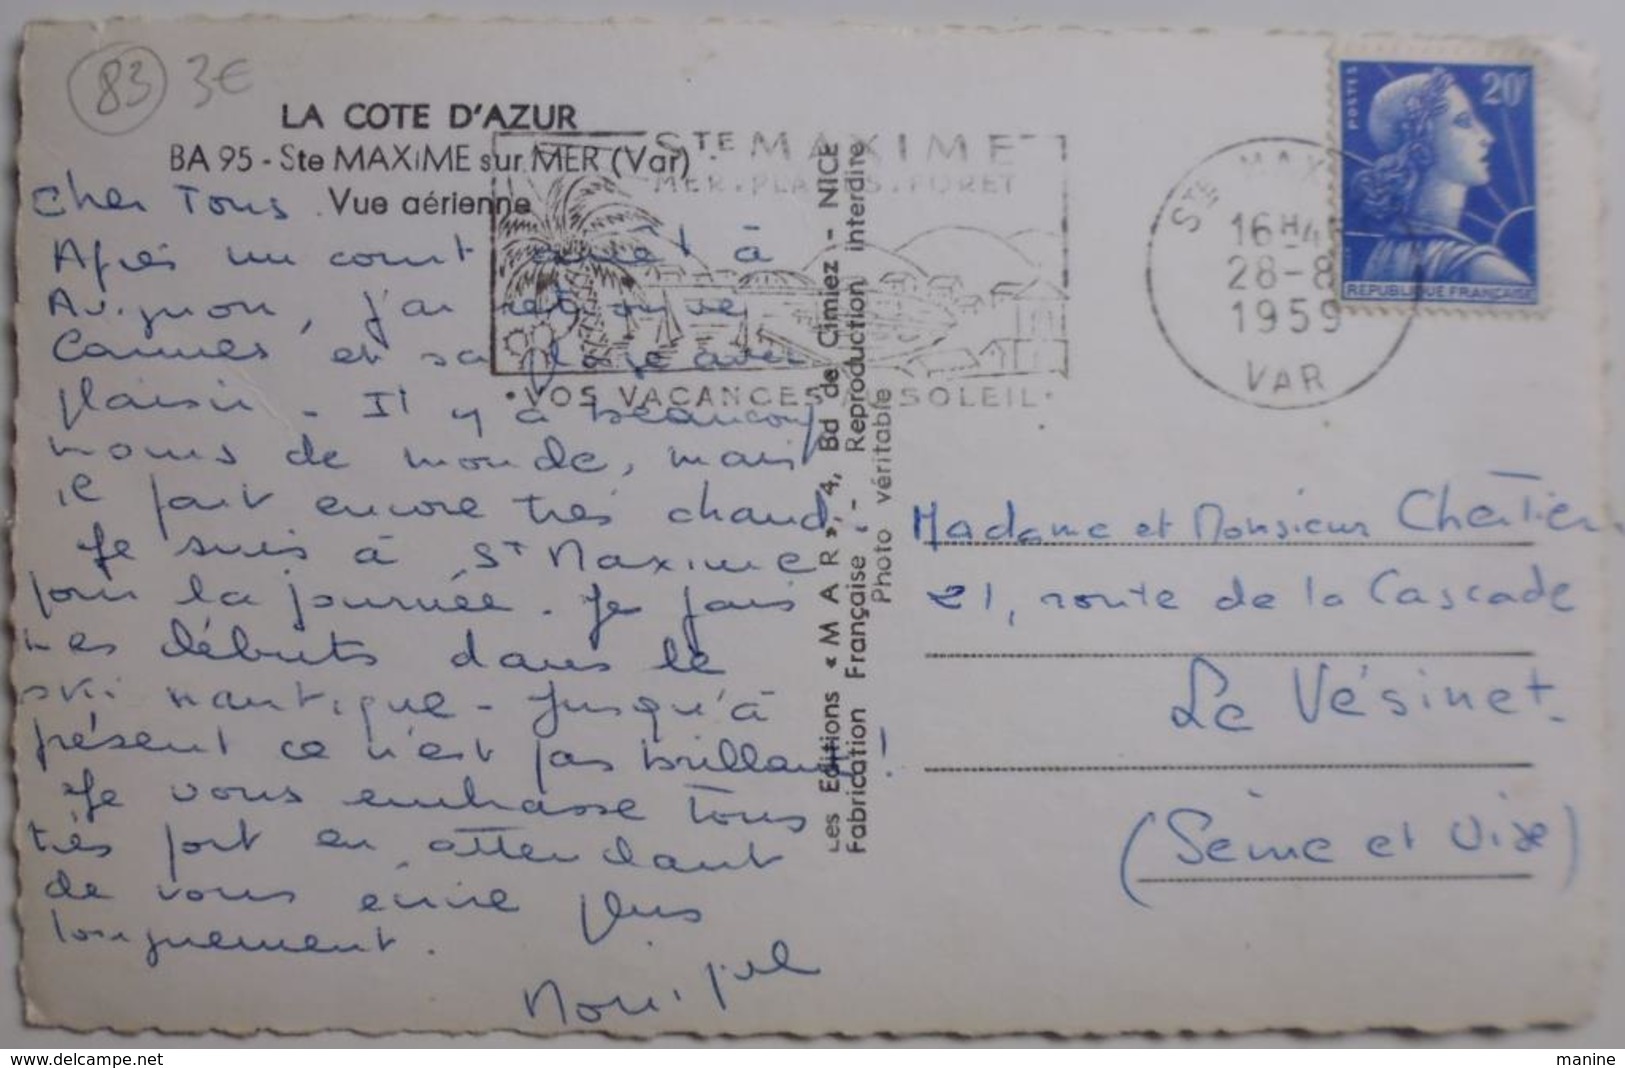 83 3€
LA COTE D'AZUR
BA 95 - Ste MAXIME sur MER (Var)
Vue aérienne
Cher Tous.
Après un court arrêt à
Avignon, j'ai retrouvé
Cannes et sa plage avec
plaisir - Il y a beaucoup
moins de monde, mais
il fait encore très chaud
Je suis à St Maxime
pour la journée. Je fais
mes débuts dans le
ski nautique - Jusqu'à
présent ce n'est pas brillant !
Je vous embrasse tous
très fort en attendant
de vous écrire plus
longuement.
Monique
STE MAXIME
MER. PLAGES. FORET
• VOS VACANCES AU SOLEIL •
STE MAX
16H4
28-8
1959
VAR
POSTES
20F
REPUBLIQUE FRANÇAISE
Les Editions « M A R », 4, Bd de Cimiez - NICE
Fabrication Française - Reproduction interdite
Photo véritable
Madame et Monsieur
21, route de la Cascade
Le Vésinet.
(Seine et Oise)
www.delcampe.net
manine